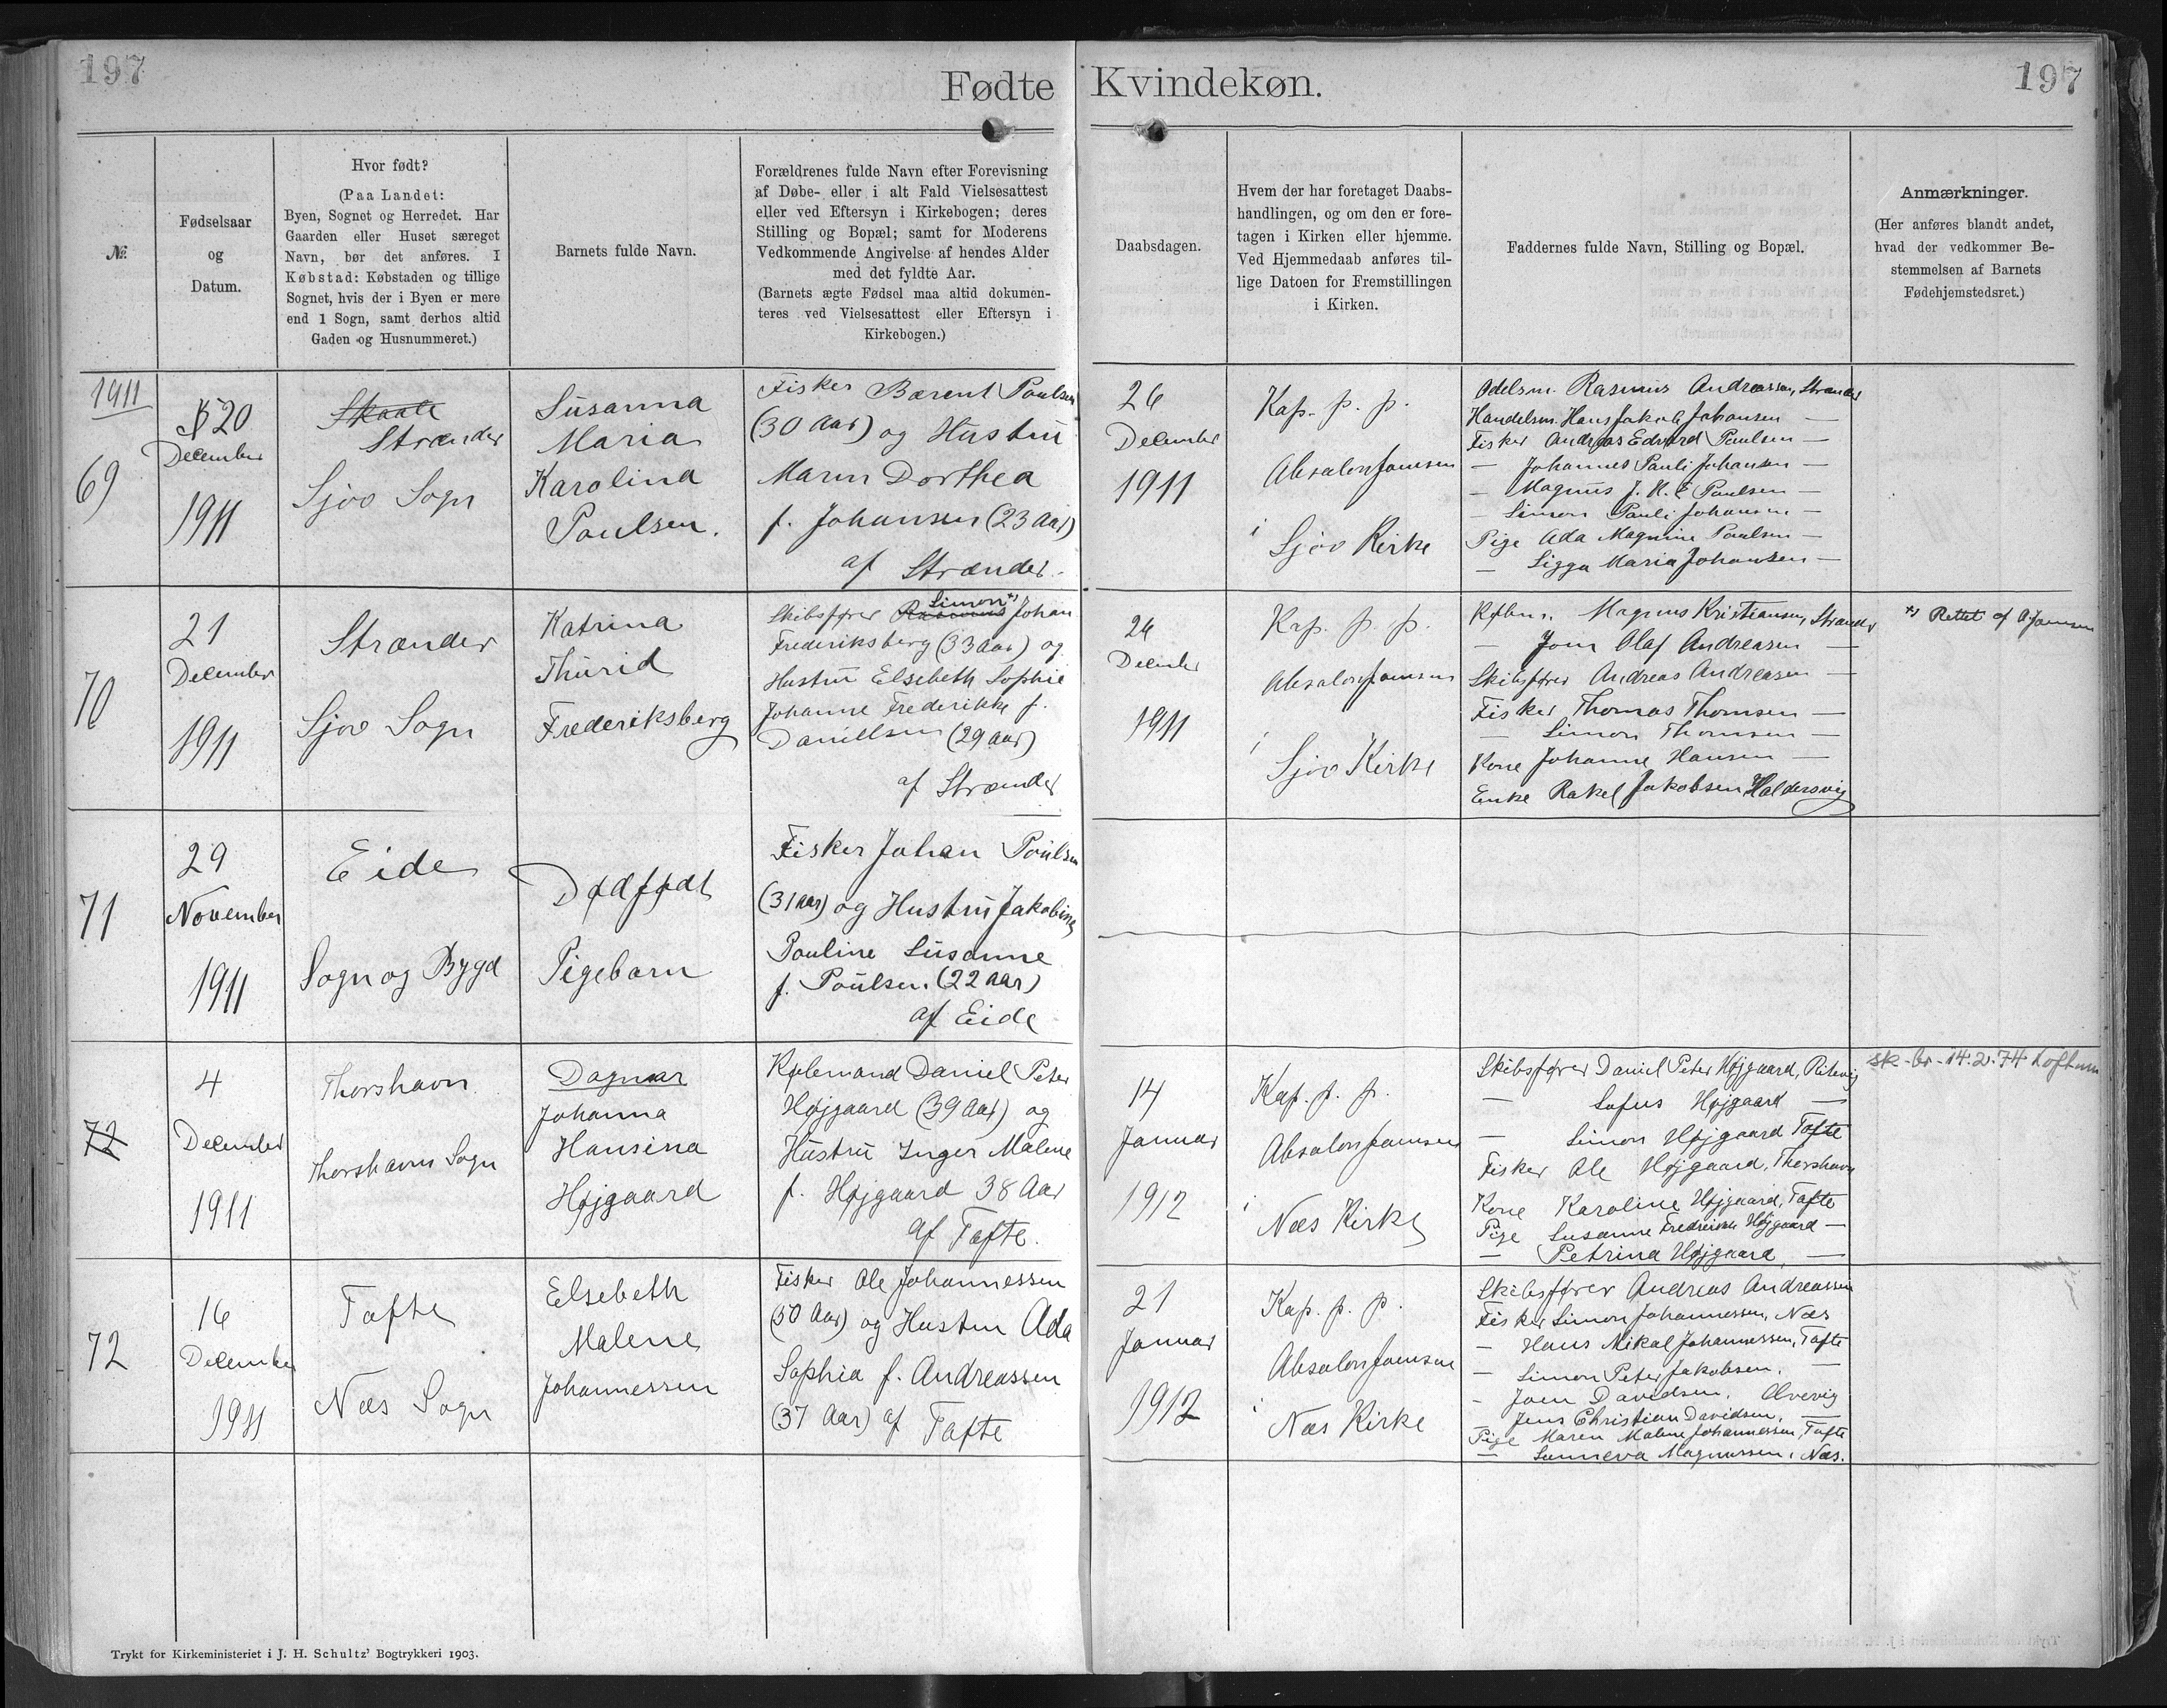 197
Fødte
Kvindekøn.
197
№
Fødselsaar
og
Datum.
Hvor født?
(Paa Landet:
Byen, Sognet og Herredet. Har
Gaarden eller Huset særeget
Navn, bør det anføres. I
Købstad: Købstaden og tillige
Sognet, hvis der i Byen er mere
end 1 Sogn, samt derhos altid
Gaden og Husnummeret.)
Barnets fulde Navn.
Forældrenes fulde Navn efter Forevisning
af Døbe- eller i alt Fald Vielsesattest
eller ved Eftersyn i Kirkebogen; deres
Stilling og Bopæl; samt for Moderens
Vedkommende Angivelse af hendes Alder
med det fyldte Aar.
(Barnets ægte Fødsel maa altid dokumen-
teres ved Vielsesattest eller Eftersyn i
Kirkebogen.)
Daabsdagen.
Hvem der har foretaget Daabs-
handlingen, og om den er fore-
tagen i Kirken eller hjemme.
Ved Hjemmedaab anføres til-
lige Datoen for Fremstillingen
i Kirken.
Faddernes fulde Navn, Stilling og Bopæl.
Anmærkninger.
(Her anføres blandt andet,
hvad der vedkommer Be-
stemmelsen af Barnets
Fødehjemstedsret.)
1911
69
20
December
1911
Skaale
Strænder
Sjov Sogn
Susanna
Maria
Karolina
Poulsen.
Fisker Barent Poulsen
(30 Aar) og Hustru
Maren Dorthea
f. Johansen (23 Aar)
af Strænder.
26
December
1911
Kap. p. p.
Absalon Joensen
i
Sjov Kirke
Odelsm. Rasmus Andreassen, Strænder
Handelsm. Hans Jakob Johansen —
Fisker Andreas Edvard Poulsen —
— Johannes Pauli Johansen —
— Magnus J. H. E Poulsen —
— Simon Pauli Johansen —
Pige Ada Magnine Poulsen —
— Sigga Maria Johansen —
70
21
December
1911
Strænder
Sjov Sogn
Katrina
Thurid
Frederiksberg
Simon *)
Skibsfører Rasmus Johan
Frederiksberg (33 Aar) og
Hustru Elsebeth Sophie
Johanne Frederikke f.
Daniellsen (29 Aar)
af Strænder
26
December
1911
Kap. p. p.
Absalon Joensen
i
Sjov Kirke
Købm. Magnus Kristiansen, Strænder
— Joen Olaf Andreasen —
Skibsfører Andreas Andreasen —
Fisker Thomas Thomsen —
— Simon Thomsen —
Kone Johanne Hansen —
Enke Rakel Jakobsen Haldersvig
*) Rettet af A Joensen
71
29
November
1911
Eide
Sogn og Bygd
Dødfødt
Pigebarn
Fisker Johan Poulsen
(31 Aar) og Hustru Jakobine
Pouline Susanne
f. Poulsen. (22 Aar)
af Eide
72
4
December
1911
Thorshavn
Thorshavns Sogn
Dagmar
Johanna
Hansina
Højgaard
Købmand Daniel Peter
Højgaard (39 Aar) og
Hustru Inger Malene
f. Højgaard 38 Aar
af Tofte.
14
Januar
1912
Kap. p. p.
Absalon Joensen
i
Næs Kirke
Skibsfører Daniel Peter Højgaard, Ritevig
— Sofus Højgaard —
— Simon Højgaard Tofte
Fisker Ole Højgaard, Thorshavn
Kone Karoline Højgaard, Tofte
Pige Susanne Fredrikke Højgaard —
— Petrina Højgaard, —
sk-br-14.2.74
72
16
December
1911
Tofte
Næs Sogn
Elsebeth
Malene
Johannessen
Fisker Ole Johannessen
(50 Aar) og Hustru Ada
Sophia f. Andreassen
(37 Aar) af Tofte
21
Januar
1912
Kap. p. p.
Absalon Joensen
i
Næs Kirke
Skibsfører Andreas Andreassen
Fisker Simon Johannessen, Næs
— Hans Mikal Johannessen, Tofte
— Simon Peter Jakobsen, —
— Joen Davidsen, Glyvevig
Jens Christian Davidsen, —
Pige Maren Malene Johannessen, Tofte
— Sunneva Magnussen, Næs.
Trykt for Kirkeministeriet i J. H. Schultz' Bogtrykkeri 1903.